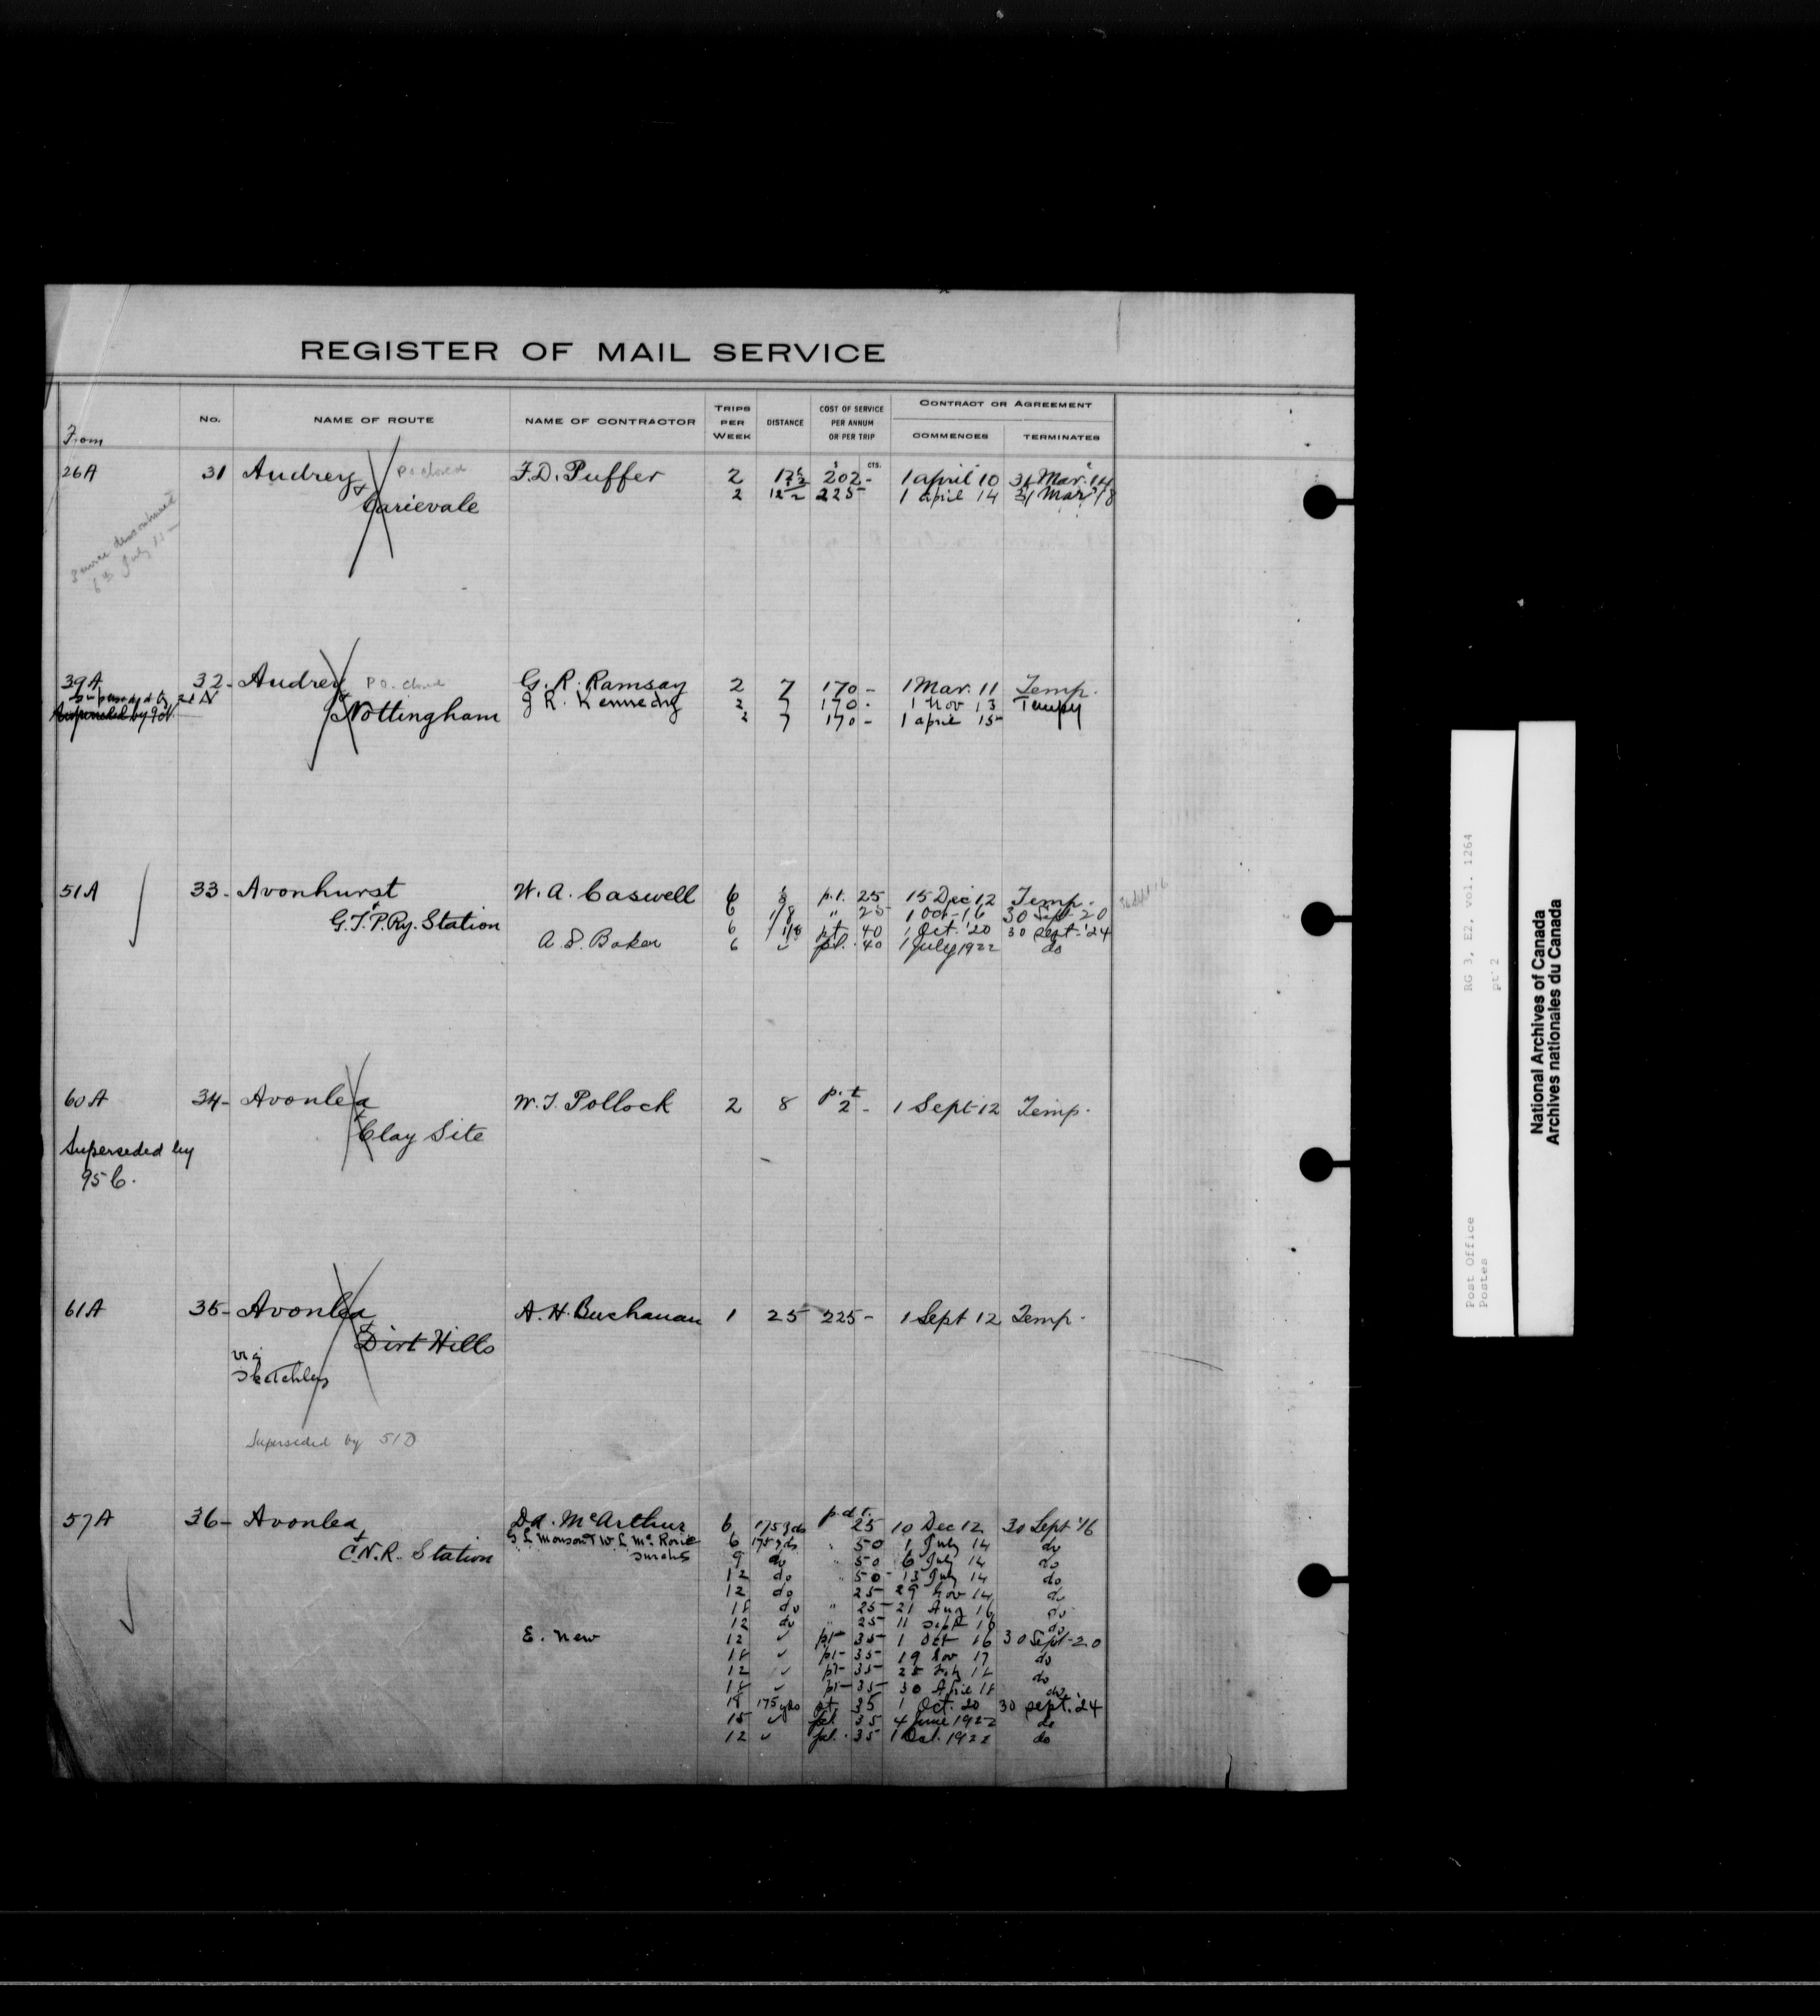 REGISTER OF MAIL SERVICE
From
No.
NAME OF ROUTE
NAME OF CONTRACTOR
TRIPS PER WEEK
DISTANCE
COST OF SERVICE PER ANNUM OR PER TRIP
CONTRACT OR AGREEMENT
COMMENCES
TERMINATES
$ CTS.
26A 31 Audrey P.O. closed F. D. Puffer 2 202- 1 April 10 31 Mar. 14
& Carievale 2 12 1/2 225- 1 April 14 31 Mar 18
Service discontinued
July 15
39A 32- Audrey P.O. closed G. R. Ramsay 2 7 170- 1 Mar. 11 Temp.
Superseded by
& Nottingham J R. Kennedy 2 7 170- 1 Nov 13 Tempy
2 7 170- 1 April 15
51A 33- Avonhurst W. A. Caswell 6 p.t. 25 15 Dec 12 Temp.
& G.T.P. Ry. Station 6 1/8 " 25 1 Oct-16 30 Sept 20
6 1/8 pt 40 1 Oct. '20 30 Sept. '24
A. S. Baker 6 ✓ pt. 40 1 July 1922 do
60A 34- Avonlea W. T. Pollock 2 8 p.t 2- 1 Sept 12 Temp.
& Clay Site
Superseded by
95 C.
61A 35- Avonlea A. H. Buchanan 1 25 225- 1 Sept 12 Temp.
& Dirt Hills
via
Sketchley
Superseded by 51D
57A 36- Avonlea D. A. McArthur 6 175 yds p.d.t. 25 10 Dec 12 30 Sept '16
& C.N.R. Station 6 175 yds " 50 1 July 14 do
9 do " 50 6 July 14 do
12 do " 50- 13 July 14 do
12 do 25- 29 Nov 14 do
18 do " 25- 21 Aug 16 do
12 do " 25- 11 Sept 16 do
E. New 12 ✓ pt- 35- 1 Oct 16 30 Sept-20
18 ✓ pt- 35- 19 Nov 17 do
12 ✓ pt- 35- do
18 ✓ pt- 35- 30 April 18 do
18 175 yds pt. 35 1 Oct. 20 30 Sept. '24
15 ✓ pt. 35 4 June 1922 do
12 ✓ pt. 35 1 Oct. 1922 do
Post Office RG 3, E2, vol. 1264
Postes pt 2
National Archives of Canada
Archives nationales du Canada